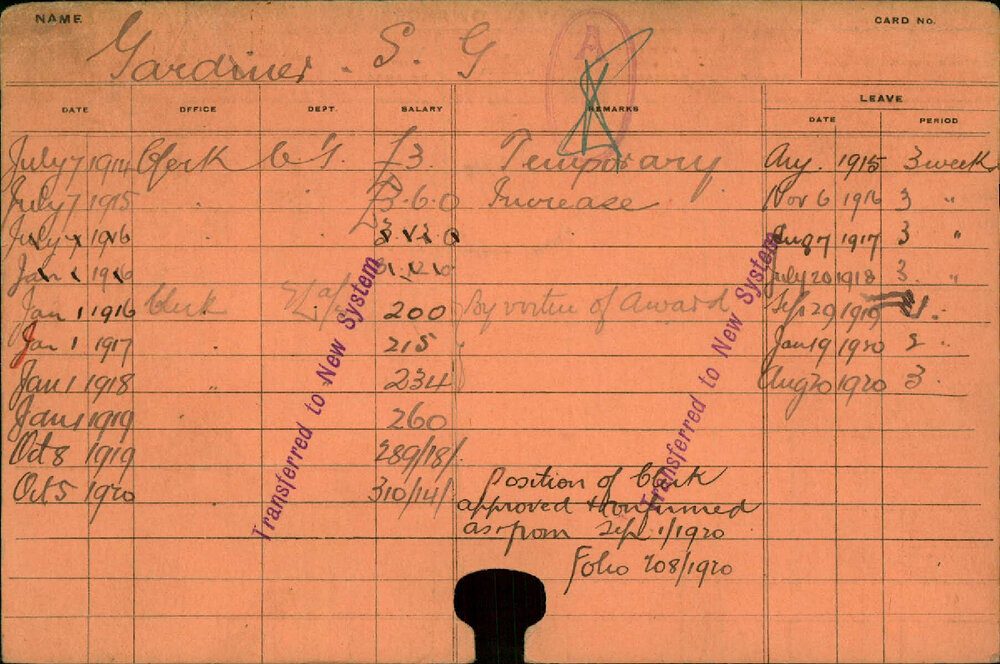 NAME CARD No.
Gardiner. S. G
A
DATE OFFICE DEPT. SALARY REMARKS LEAVE
DATE PERIOD
July 7 1914 Clerk C's. £3. Temporary Aug. 1915 3 week
July 7 1915 " " £3.6.0 Increase Nov 6 1916 3 "
July 1916 " Aug 7 1917 3 "
Jan 1 1916 July 20 1918 3 "
Jan 1 1916 Clerk 200 By virtue of Award Sep 29 1919
Jan 1 1917 215 Jan 19 1920 2 "
Jan 1 1918 " 234 Aug 20 1920 3 "
Jan 1 1919 " 260
Oct 8 1919 289/18/
Oct 5 1920 310/14/ Position of Clerk
approved & confirmed
as from Sep. 1/1920
Folio 208/1920
Transferred to New System
Transferred to New System